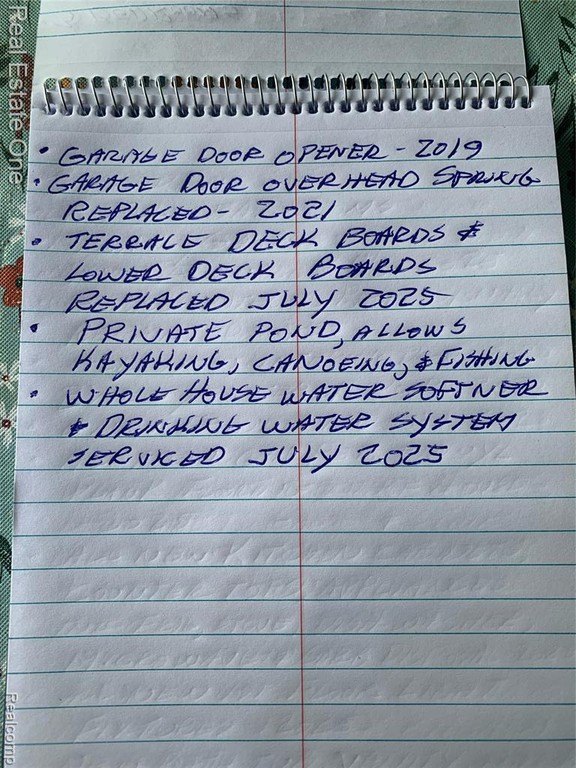 • GARAGE DOOR OPENER - 2019
• GARAGE DOOR OVERHEAD SPRING
REPLACED - 2021
• TERRACE DECK BOARDS &
LOWER DECK BOARDS
REPLACED JULY 2025
• PRIVATE POND, ALLOWS
KAYAKING, CANOEING, & FISHING
• WHOLE HOUSE WATER SOFTNER
& DRINKING WATER SYSTEM
SERVICED JULY 2025
Real Estate One
Realcomp